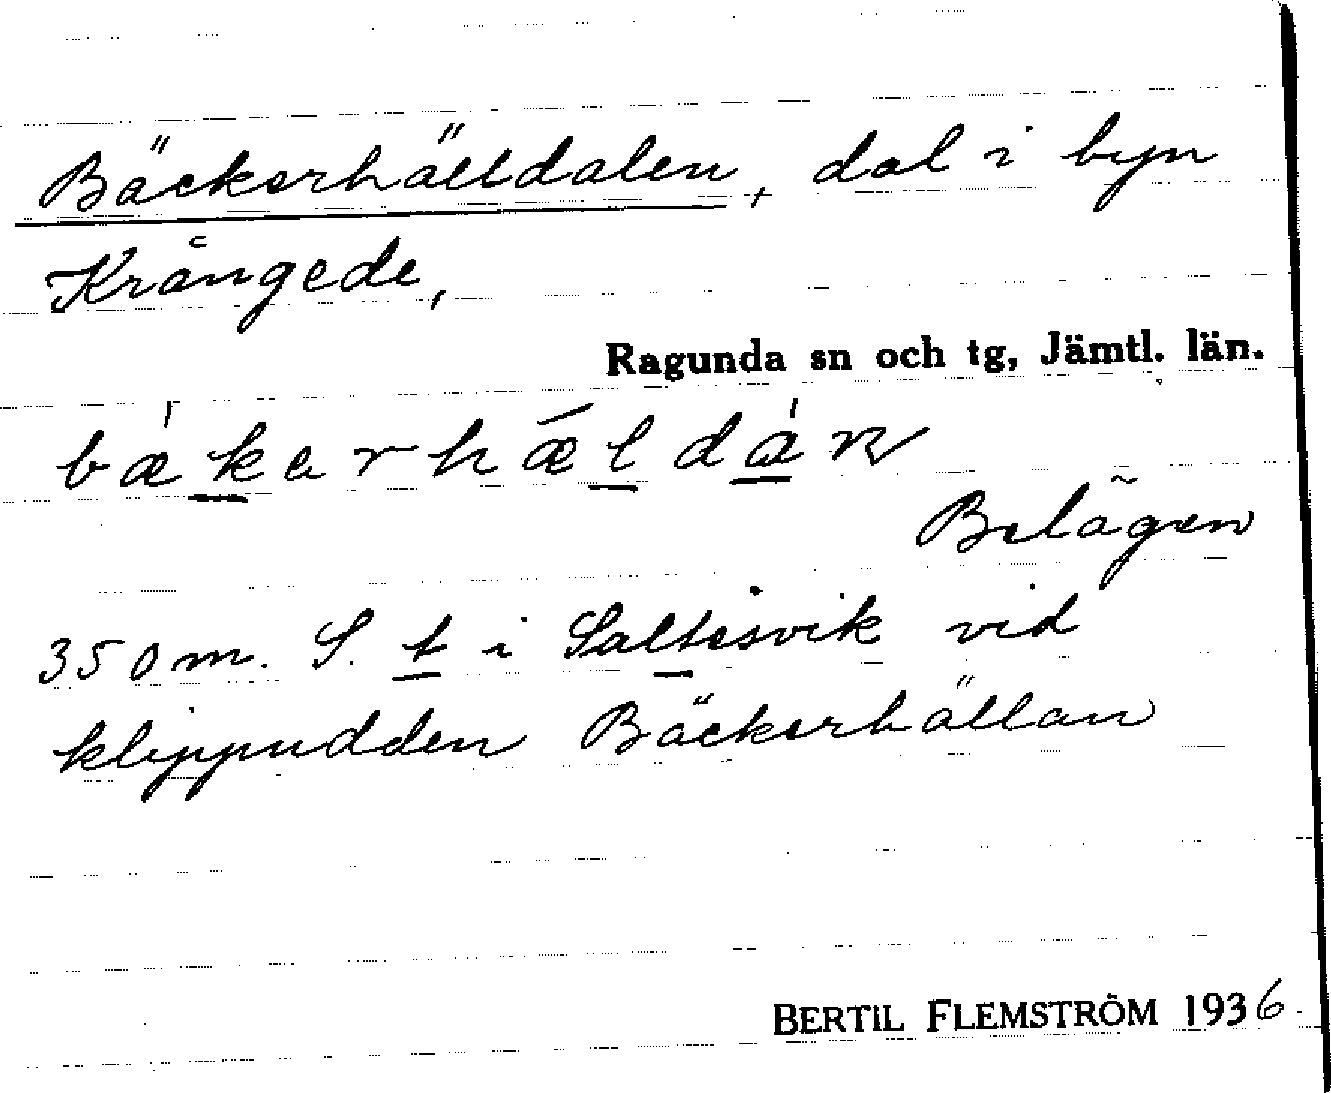 Bäckerhälldalen, dal i byn
Krångede,
Ragunda sn och tg, Jämtl. län.
Belägen
350 m. S. t i Saltesvik vid
klippudden Bäckerhällan
BERTIL FLEMSTRÖM 1936